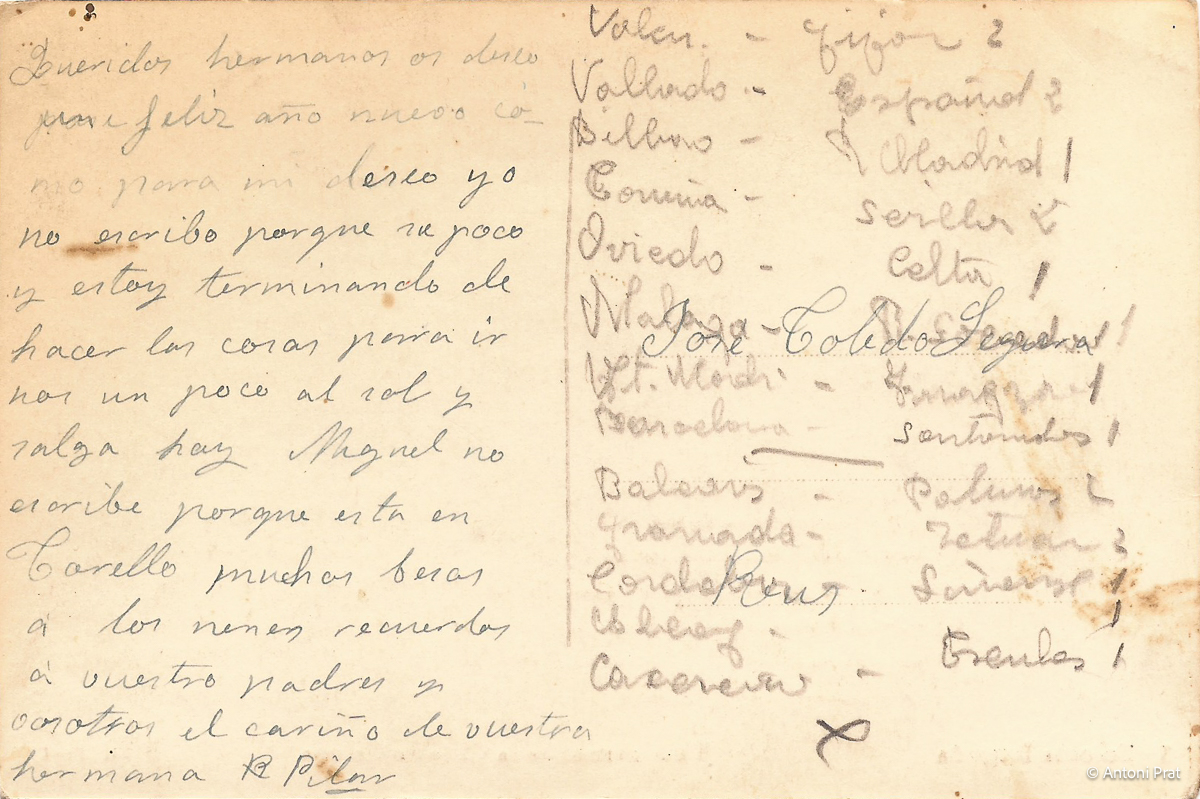 Queridos hermanos os deseo
feliz año nuevo co-
mo para mi deseo yo
no escribo porque se poco
y estoy terminando de
hacer las cosas para ir
nos un poco al sol y
salga hay Miguel no
escribe porque esta en
Torello muchos besos
á los nenes recuerdos
á vuestro padres y
vosotros el cariño de vuestra
hermana Pilar
Valen. - Gijon 2
Vallado - Español 2
Bilbao - Madrid 1
Coruña - Sevilla 2
Oviedo - Celta 1
Malaga -
José Toledo Segura
At. Madri - Zaragoza 1
Barcelona - Santander 1
Baleares - 2
Granada - Tetuan 2
Cordoba 1
Reus
Hercules 1
X
© Antoni Prat